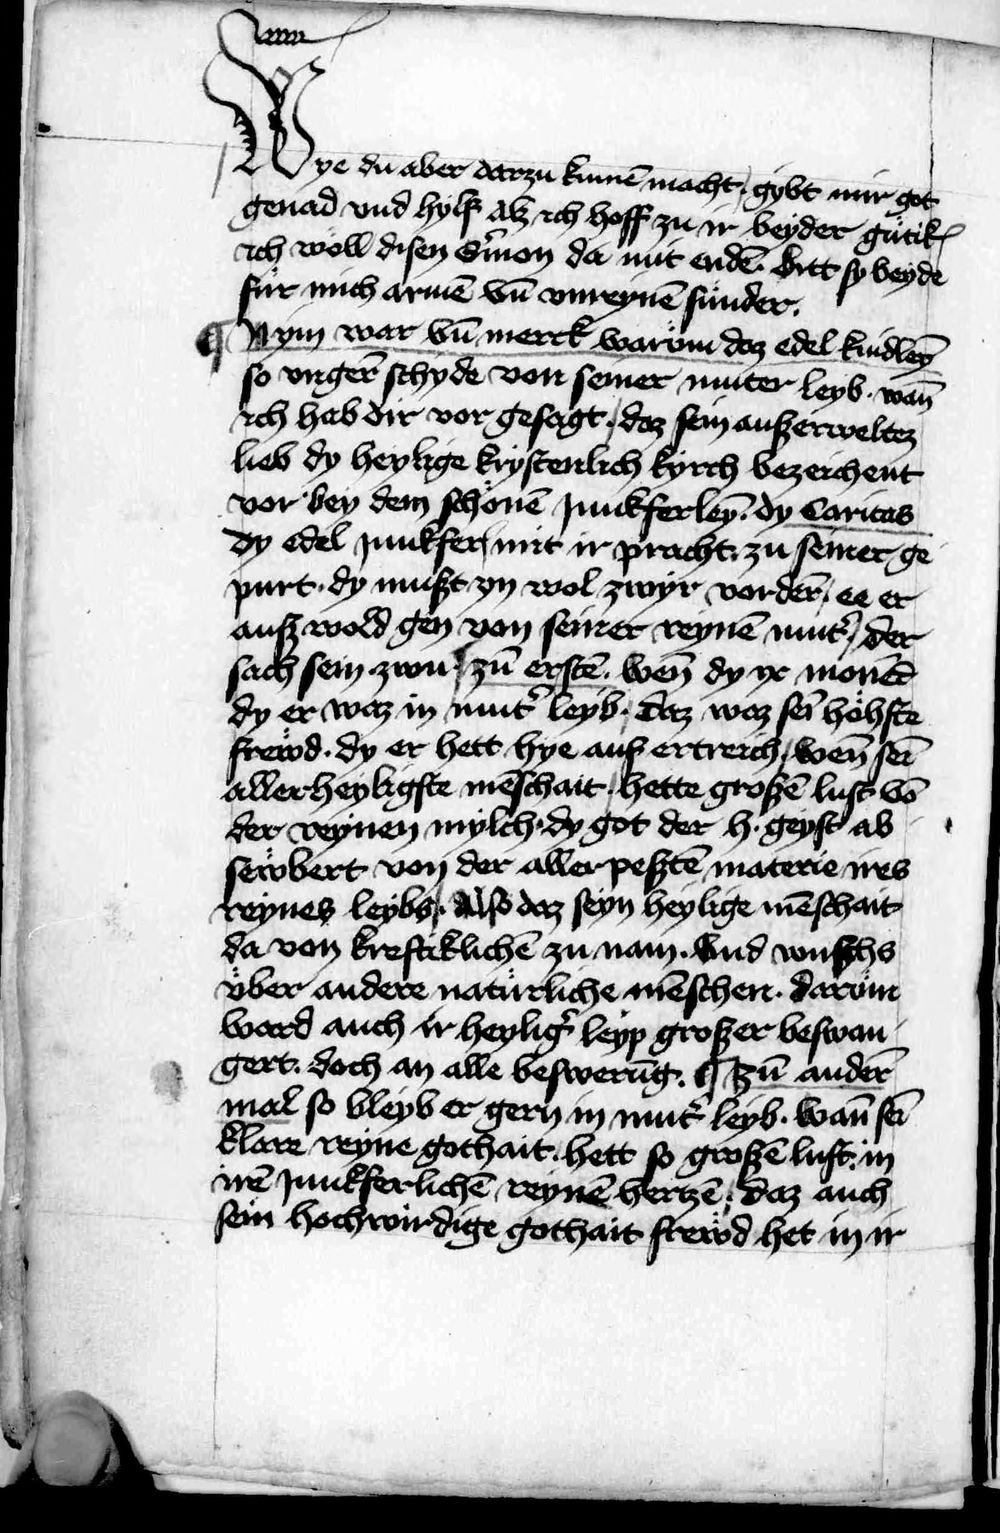 Wye du aber darzu kumē macht. gybt mir got
genad vnd hylf Alz ich hoff zu ir beyder gütik
ich wöll disen S̄mon da mit endē. Bitt sy beyde
für mich armē vn̄ vnreynē sünder.
¶ Nym war vn̄ merck warüm daz edel kindley̅
so vnger̄ schyde von seiner muter leyb. wan̄
ich hab dir vor gesagt. daz sein außerweltez
lieb dy heylige krystenlich kyrch bezeichent
vor bey dem schönē Junkferley̅. dy Caritas
dy edel Junkfer mit ir pracht. zu seiner ge
purt. dy must yn wol zwyr vorder̄. ee er
auß wold gen von seiner reynē mut̛. Der
sach sein zwu. zu̅ erstē. Wen̄ dy ix monēt
dy er waz in mut̛ leyb. Daz waz sei̅ höhste
frewd. dy er hett hye auf ertreich. Wen̄ sei̅
allerheyligste mēschait. hette großē lust vō
der reynen mylch. dy got der h. geyst ab
sewbert von der aller pestē materie ires
reynes leybs. Also daz seyn heylige mēschait
da von kreftiklichē zu nam. Vnd wuchs
über andere natürliche mēschen. Darüm
Ward auch ir heylig̛ leyp großer beswan
gert. doch an alle beswerūg. ¶ Zu̅ ander̄
mal so bleyb er gern in mut̛ leyb. Wan̄ sei̅
klare reyne gothait. hett so großē lust. in
irē Junkferlichē reynē hertzē. Daz auch
sein hochwirdige gothait frewd het in ir